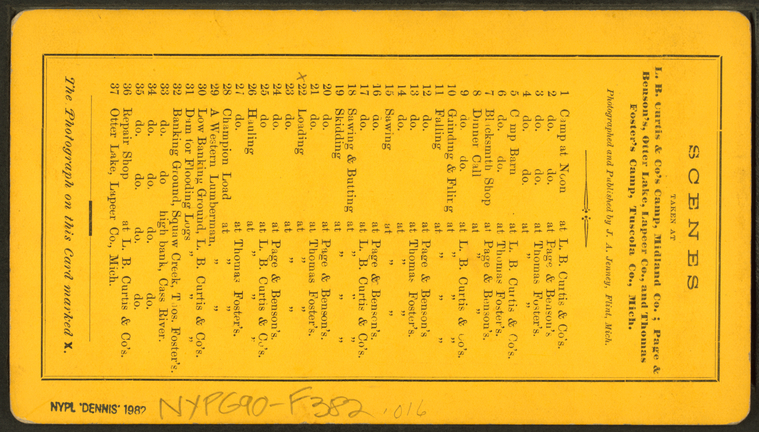 SCENES
TAKEN AT
L. B. Curtis & Co's Camp, Midland Co.; Page &
Benson's, Otter Lake, Lapeer Co., and Thomas
Foster's Camp, Tuscola Co., Mich.
Photographed and Published by J. A. Jenney, Flint, Mich.
1 Camp at Noon at L. B. Curtis & Co's.
2 do. do. at Page & Benson's
3 do. do. at Thomas Foster's.
4 do. do. " "
5 Camp Barn at L. B. Curtis & Co's.
6 do. do. at Thomas Foster's.
7 Blacksmith Shop at Page & Benson's.
8 Dinner Call " "
9 do. do. at L. B. Curtis & Co's.
10 Grinding & Filing at " "
11 Falling at " "
12 do. at Page & Benson's
13 do. at Thomas Foster's.
14 do. at " "
15 Sawing at " "
16 do. at Page & Benson's.
17 do. at L. B. Curtis & Co's.
18 Sawing & Butting at " "
19 Skidding at " "
20 do. at Page & Benson's.
21 do. at Thomas Foster's.
x22 Loading at " "
23 do. at " "
24 do. at Page & Benson's.
25 do at L. B. Curtis & Co's.
26 Hauling at " "
27 do. at Thomas Foster's.
28 Champion Load at " "
29 A Western Lumberman, " "
30 Low Banking Ground, L. B. Curtis & Co's.
31 Dam for Flooding Logs " "
32 Banking Ground, Squaw Creek, Thos. Foster's.
33 do. do high bank, Cass River.
34 do. do. do. do.
35 do. do. do. do.
36 Repair Shop at L. B. Curtis & Co's.
37 Otter Lake, Lapeer Co., Mich.
The Photograph on this Card marked X.
NYPL 'DENNIS' 1982
NYPG90-F382 .016